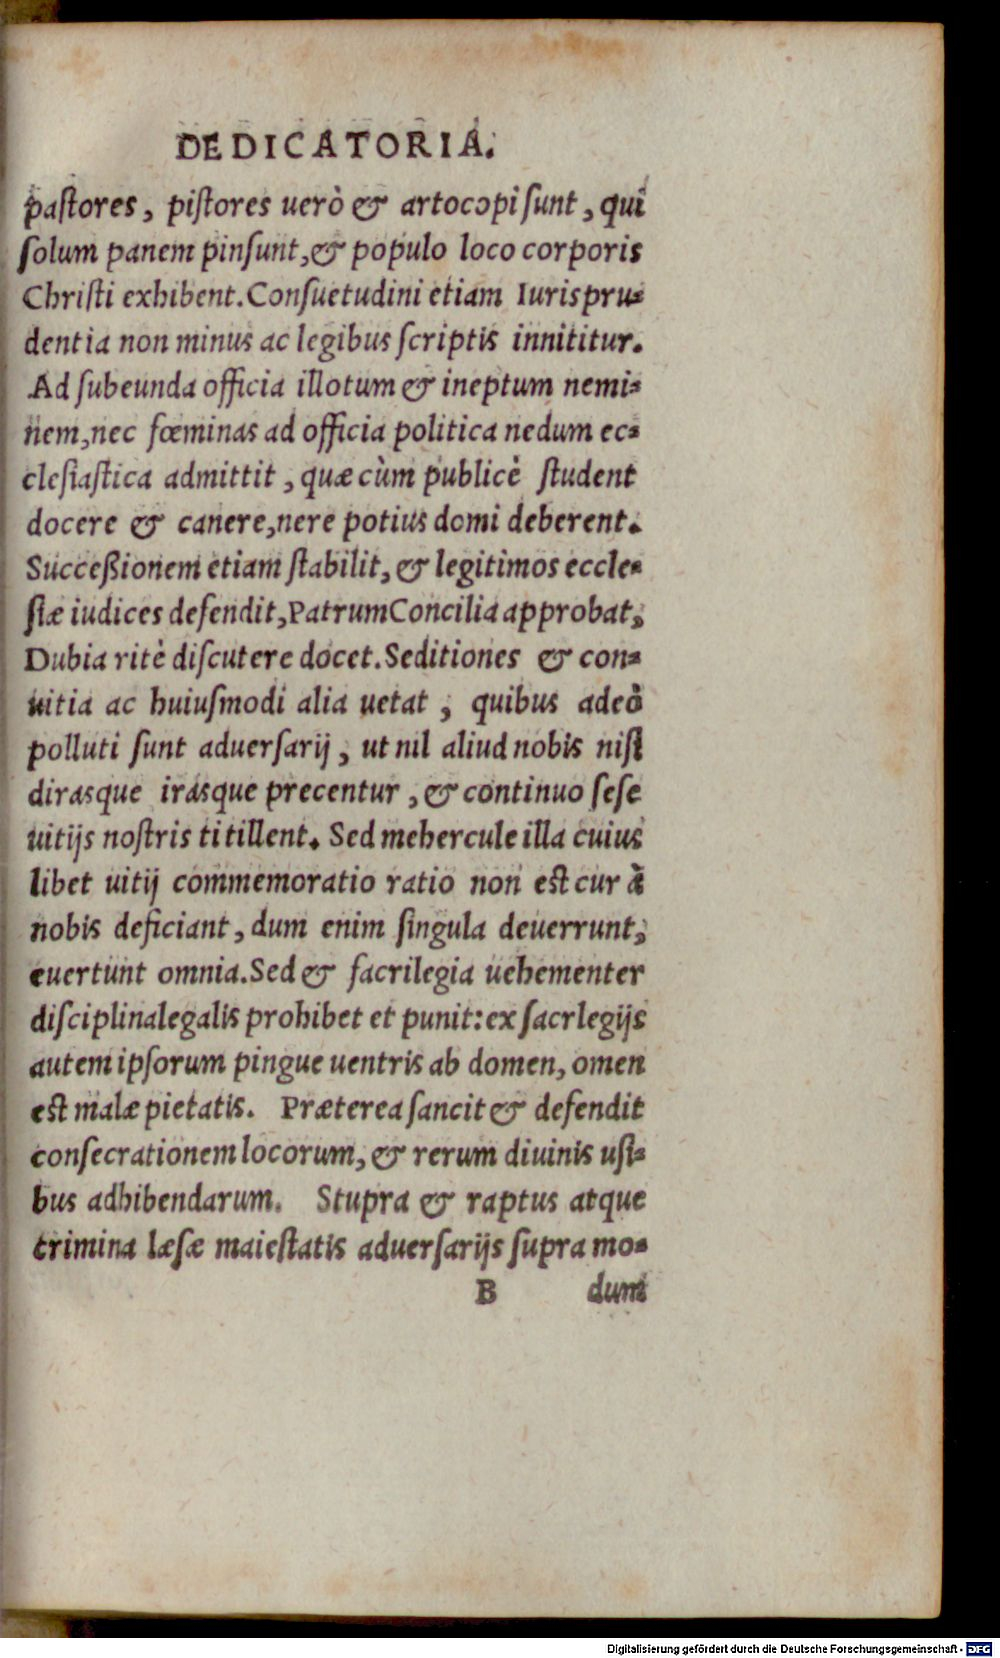 DEDICATORIA.
paſtores, piſtores uerò & artocopi ſunt, qui
ſolum panem pinſunt, & populo loco corporis
Chriſti exhibent. Conſuetudini etiam Iuriſpru⸗
dentia non minus ac legibus ſcriptis innititur.
Ad ſubeunda officia illotum & ineptum nemi⸗
nem, nec fœminas ad officia politica nedum ec⸗
cleſiaſtica admittit, quæ cùm publicè ſtudent
docere & canere, nere potius domi deberent.
Succeßionem etiam ſtabilit, & legitimos eccle⸗
ſiæ iudices defendit, Patrum Concilia approbat,
Dubia ritè diſcutere docet. Seditiones & con⸗
uitia ac huiuſmodi alia uetat, quibus adeò
polluti ſunt aduerſarij, ut nil aliud nobis niſi
dirasque irasque precentur, & continuo ſeſe
uitijs noſtris titillent. Sed mehercule illa cuius
libet uitij commemoratio ratio non eſt cur à
nobis deficiant, dum enim ſingula deuerrunt,
euertunt omnia. Sed & ſacrilegia uehementer
diſciplina legalis prohibet et punit: ex ſacrlegijs
autem ipſorum pingue uentris ab domen, omen
eſt malæ pietatis. Præterea ſancit & defendit
conſecrationem locorum, & rerum diuinis uſi⸗
bus adhibendarum. Stupra & raptus atque
crimina læſæ maieſtatis aduerſarijs ſupra mo⸗
B dum
Digitalisierung gefördert durch die Deutsche Forschungsgemeinschaft - DFG